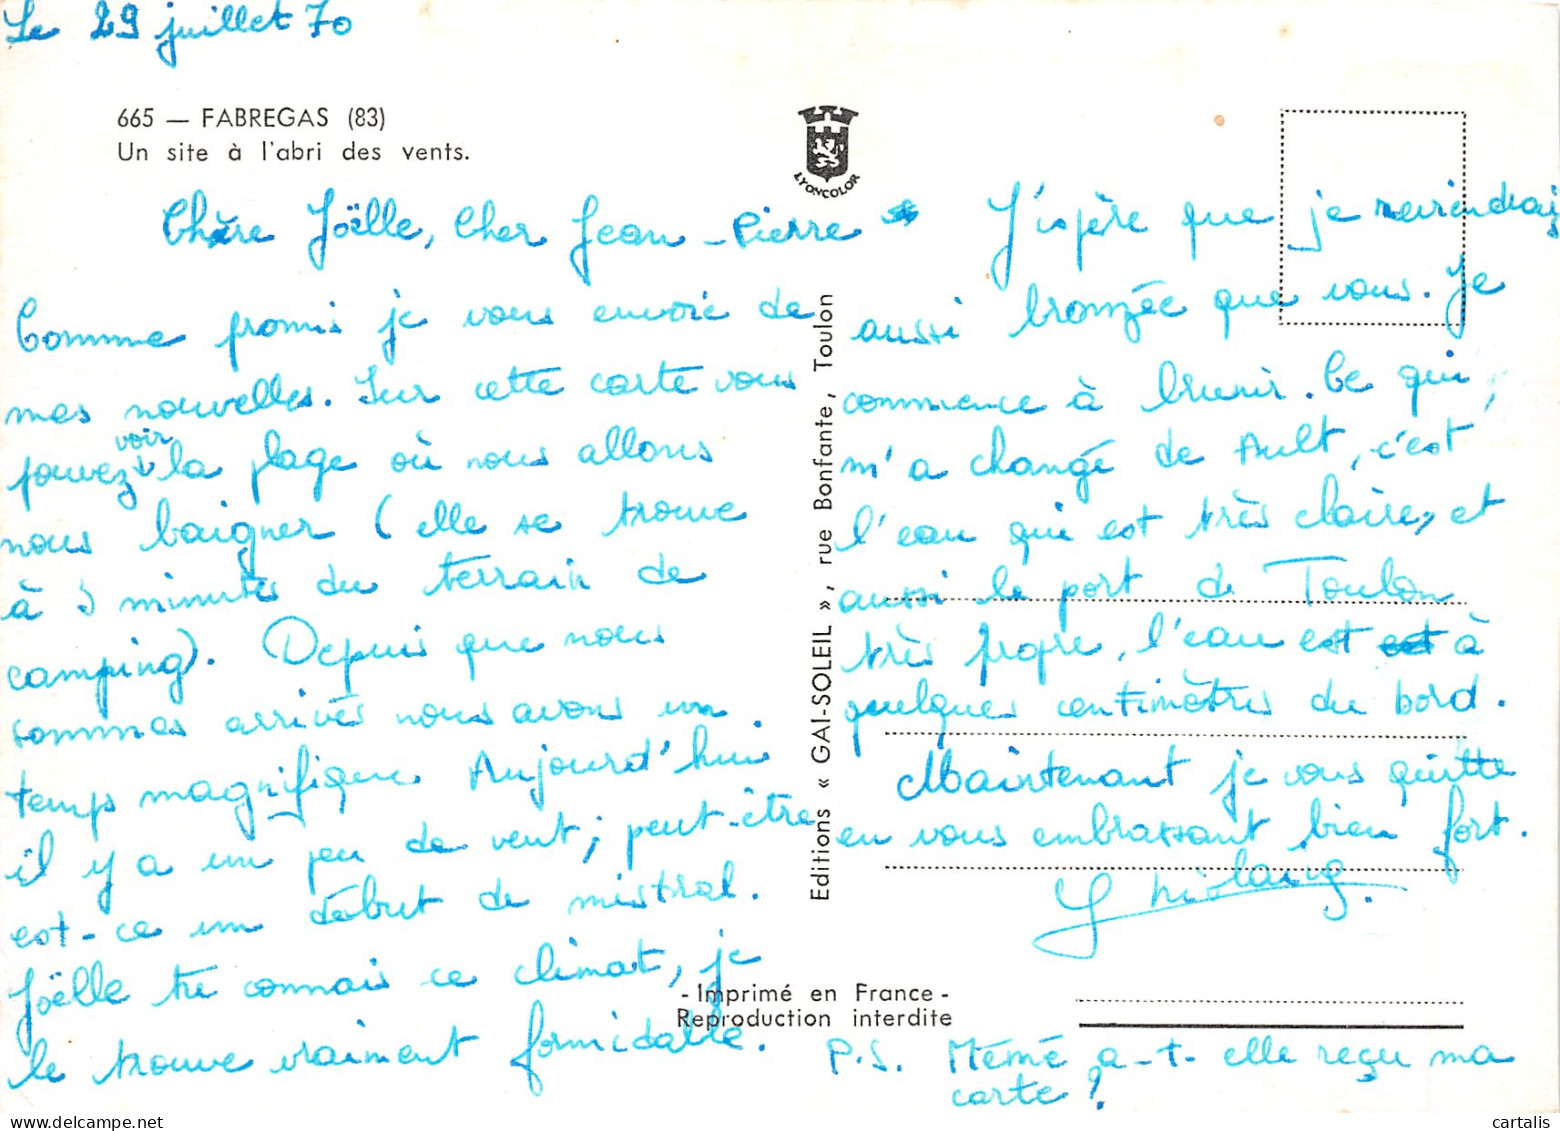 Le 29 juillet 70
665 — FABREGAS (83)
Un site à l'abri des vents.
LYONCOLOR
Chère Joëlle, Cher Jean-Pierre
Comme promis je vous envoie de
mes nouvelles. Sur cette carte vous
pouvez voir la plage où nous allons
nous baigner (elle se trouve
à 5 minutes du terrain de
camping). Depuis que nous
sommes arrivés nous avons un
temps magnifique. Aujourd'hui
il y a un peu de vent; peut-être
est-ce un début de mistral.
Joëlle tu connais ce climat, je
le trouve vraiment formidable.
Editions « GAI-SOLEIL », rue Bonfante, Toulon
J'espère que je reviendrai
aussi bronzée que vous. Je
commence à brunir. Ce qui,
m'a changé de Ault, c'est
l'eau qui est très claire, et
aussi le port de Toulon
très propre, l'eau est à
quelques centimètres du bord.
Maintenant je vous quitte
en vous embrassant bien fort.
- Imprimé en France -
Reproduction interdite
P.S. Mémé a-t-elle reçu ma
carte ?
cartalis